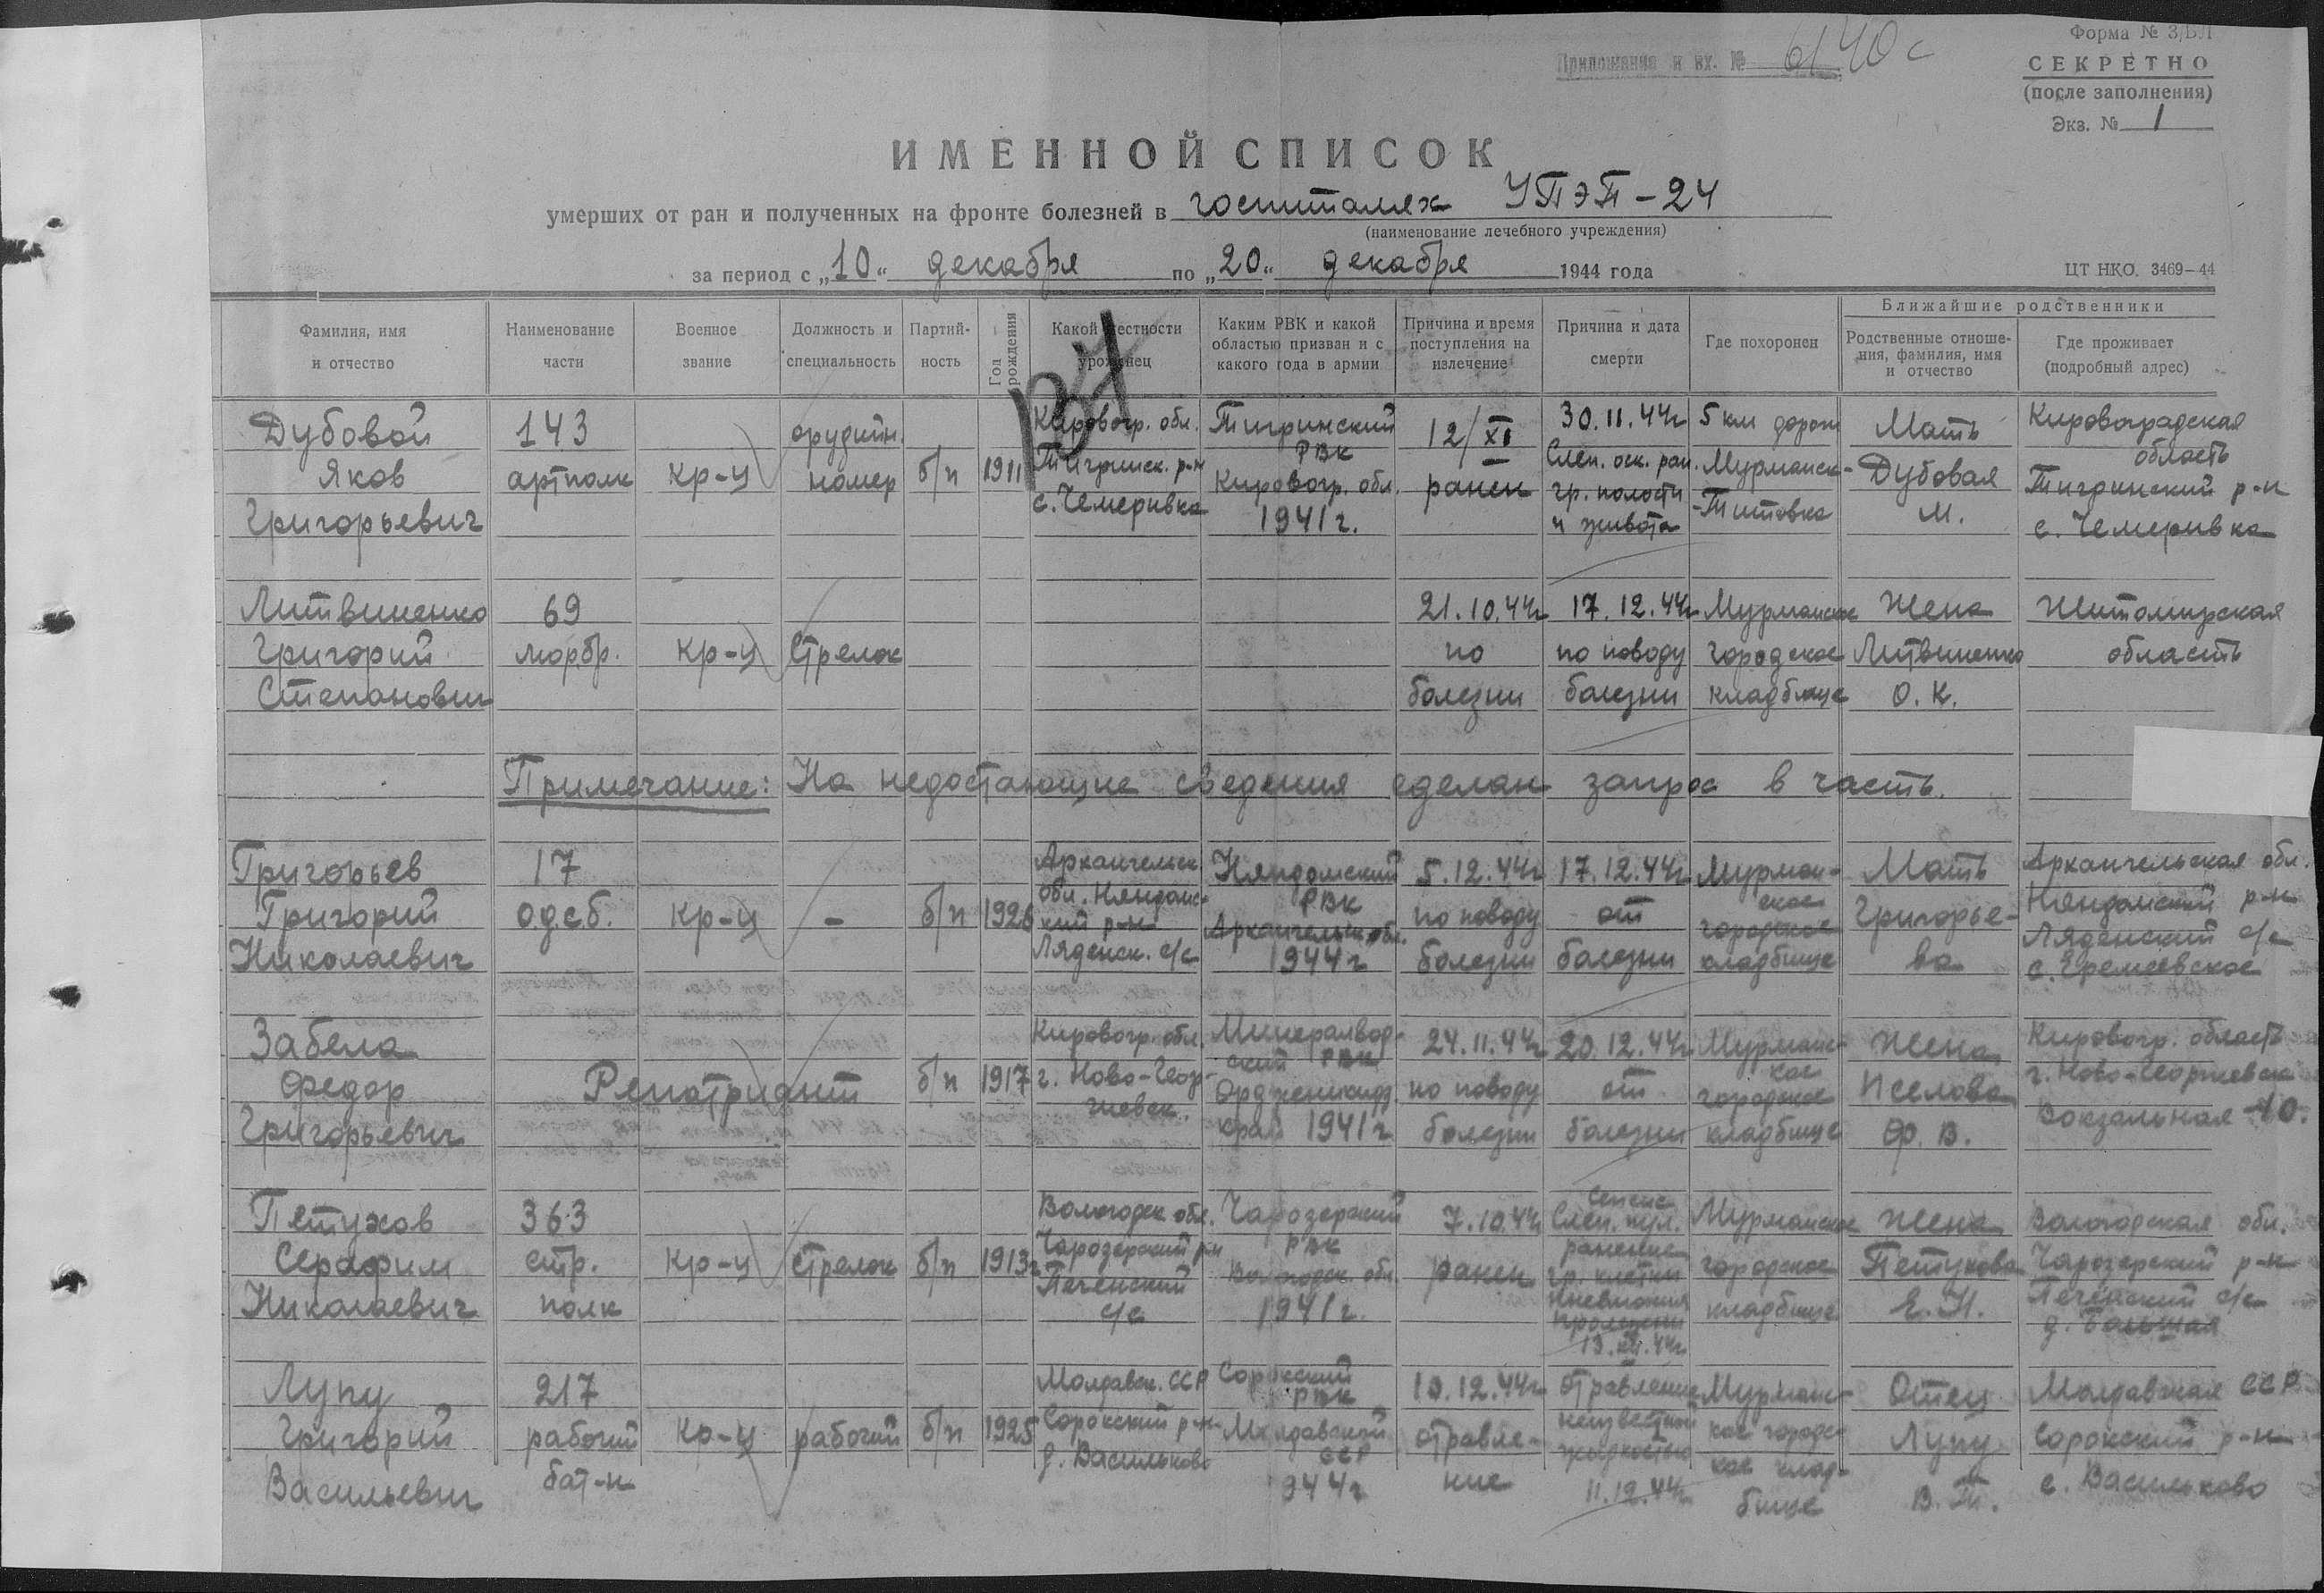 Форма № 3/БЛ
Приложения к вх. № 6140с
СЕКРЕТНО
(после заполнения)
Экз. № 1
ИМЕННОЙ СПИСОК
умерших от ран и полученных на фронте болезней в госпиталях УПЭП-24
(наименование лечебного учреждения)
за период с „10“ декабря по „20“ декабря 1944 года
ЦТ НКО. 3469-44
Фамилия, имя и отчество
Наименование части
Военное звание
Должность и специальность
Партий- ность
Год рождения
Какой местности уроженец
Каким РВК и какой областью призван и с какого года в армии
Причина и время поступления на излечение
Причина и дата смерти
Где похоронен
Ближайшие родственники
Родственные отноше- ния, фамилия, имя и отчество
Где проживает (подробный адрес)
Дубовой Яков Григорьевич
143 артполк
кр-ц
орудийн. номер
б/п
1911
Кировогр. обл. Тигринск. р-н с. Чемеривка
Тигринский РВК Кировогр. обл. 1941 г.
12/XI ранен
30.11.44г Слеп. оск. ран. гр. полости и живота
5 км дороги Мурманск-Титовка
Мать Дубовая М.
Кировоградская область Тигринский р-н с. Чемеривка
Литвиненко Григорий Степанович
69 морбр.
кр-ц
Стрелок
21.10.44г по болезни
17.12.44г по поводу болезни
Мурманское городское кладбище
Жена Литвиненко О. К.
Житомирская область
Примечание: На недостающие сведения сделан запрос в часть.
Григорьев Григорий Николаевич
17 одсб.
кр-ц
-
б/п
1926
Архангельск обл. Няндомс- кий р-н Ляденск. с/с
Няндомский РВК Архангельск обл. 1944 г
5.12.44г по поводу болезни
17.12.44г от болезни
Мурман- ское городское кладбище
Мать Григорье- ва
Архангельская обл. Няндомский р-н Ляденский с/с с. Еремеевское
Забела Федор Григорьевич
Репатриант
б/п
1917
Кировогр. обл. г. Ново-Геор- гиевск.
Минералвод- ский РВК Орджоникидз. край 1941 г
24.11.44г по поводу болезни
20.12.44г. от болезни
Мурманс- кое городское кладбище
Жена Пселова Ф. В.
Кировогр. область г. Ново-Георгиевск Вокзальная - 10.
Петухов Серафим Николаевич
363 стр. полк
кр-ц
Стрелок
б/п
1913г
Вологодск обл. Чарозерский р-н Печенский с/с
Чарозерский РВК Вологодск. обл. 1941 г.
7.10.44 ранен
Сепсис Слеп. пул. ранение гр. клетки Пневмония пролежни 13.XII.44г
Мурманское городское кладбище
Жена Петухова Е. Н.
Вологодская обл. Чарозерский р-н Печенский с/с д. Большая
Лупу Григорий Васильевич
217 рабочий бат-н
кр-ц
рабочий
б/п
1925
Молдавск. ССР Сорокский р-н д. Васильково
Сорокский РВК Молдавской ССР 944г
10.12.44г отравле- ние
отравление неизвестной жидкостью 11.12.44г
Мурманс- кое городс- кое клад- бище
Отец Лупу В. Т.
Молдавская ССР Сорокский р-н с. Васильково